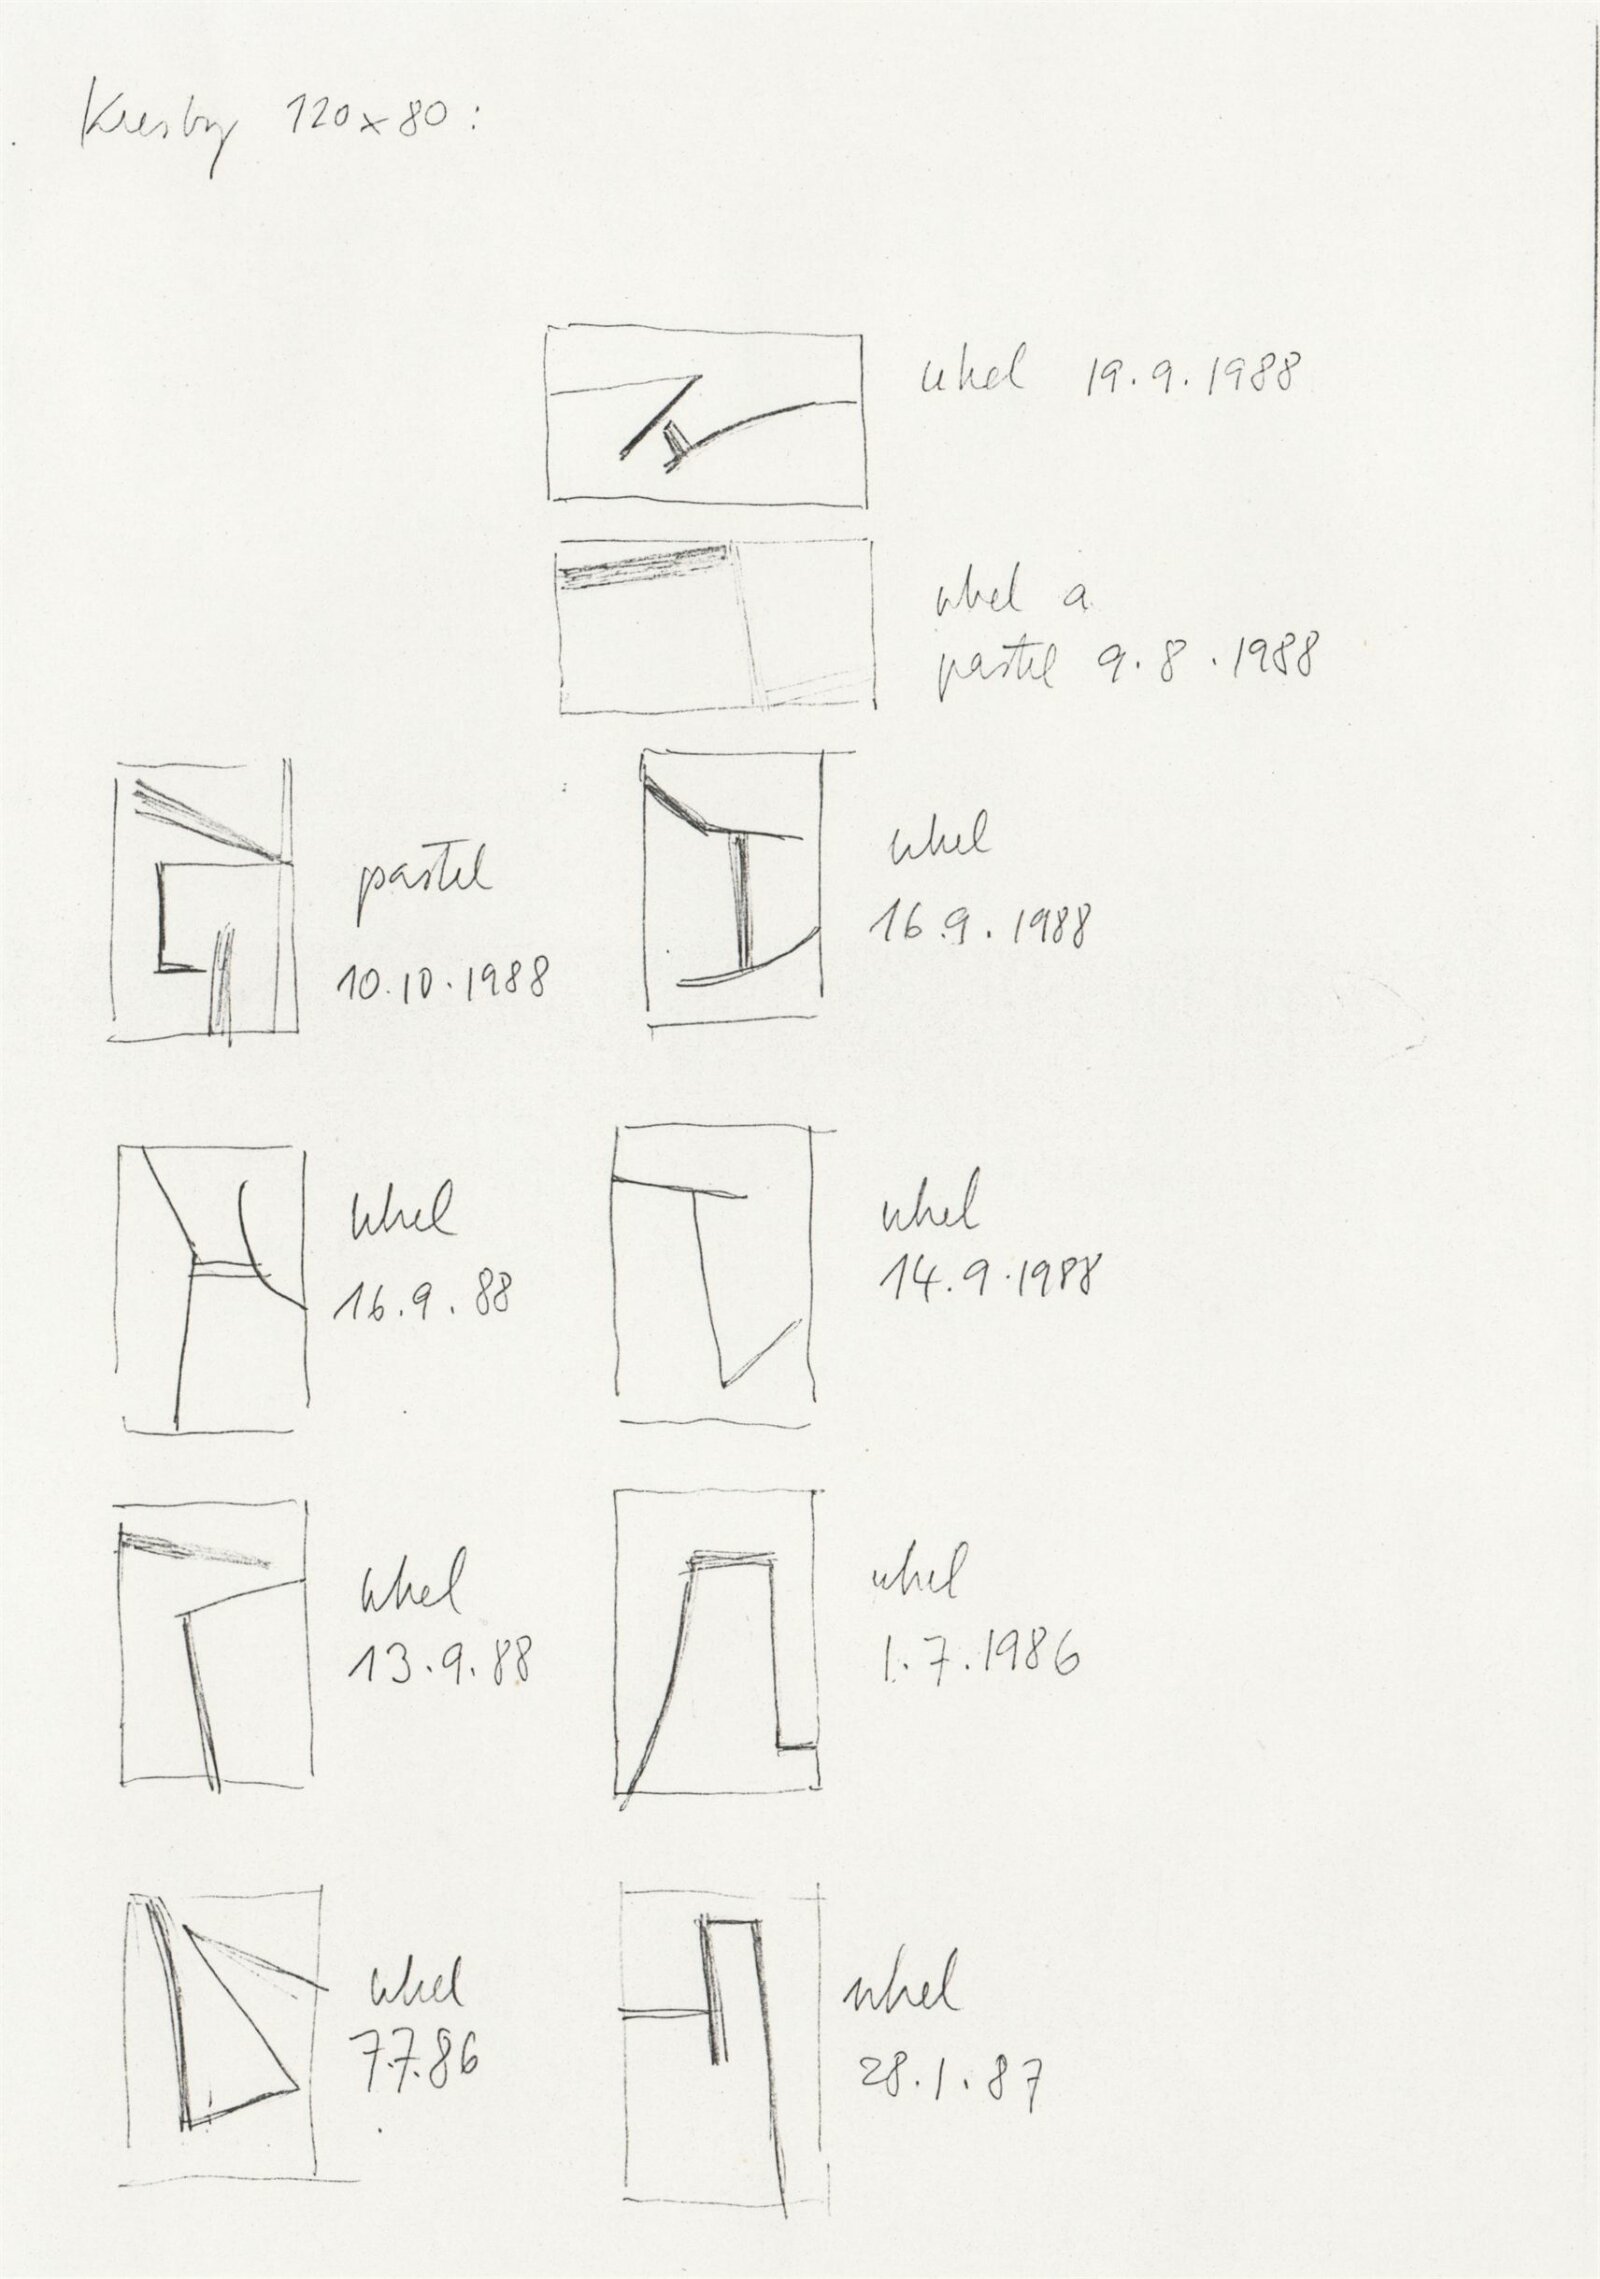 Kresby 120x80:
uhel 19.9.1988
uhel a
pastel 9.8.1988
pastel
10.10.1988
uhel
16.9.1988
uhel
16.9.88
uhel
14.9.1988
uhel
13.9.88
uhel
1.7.1986
uhel
7.7.86
uhel
28.1.87